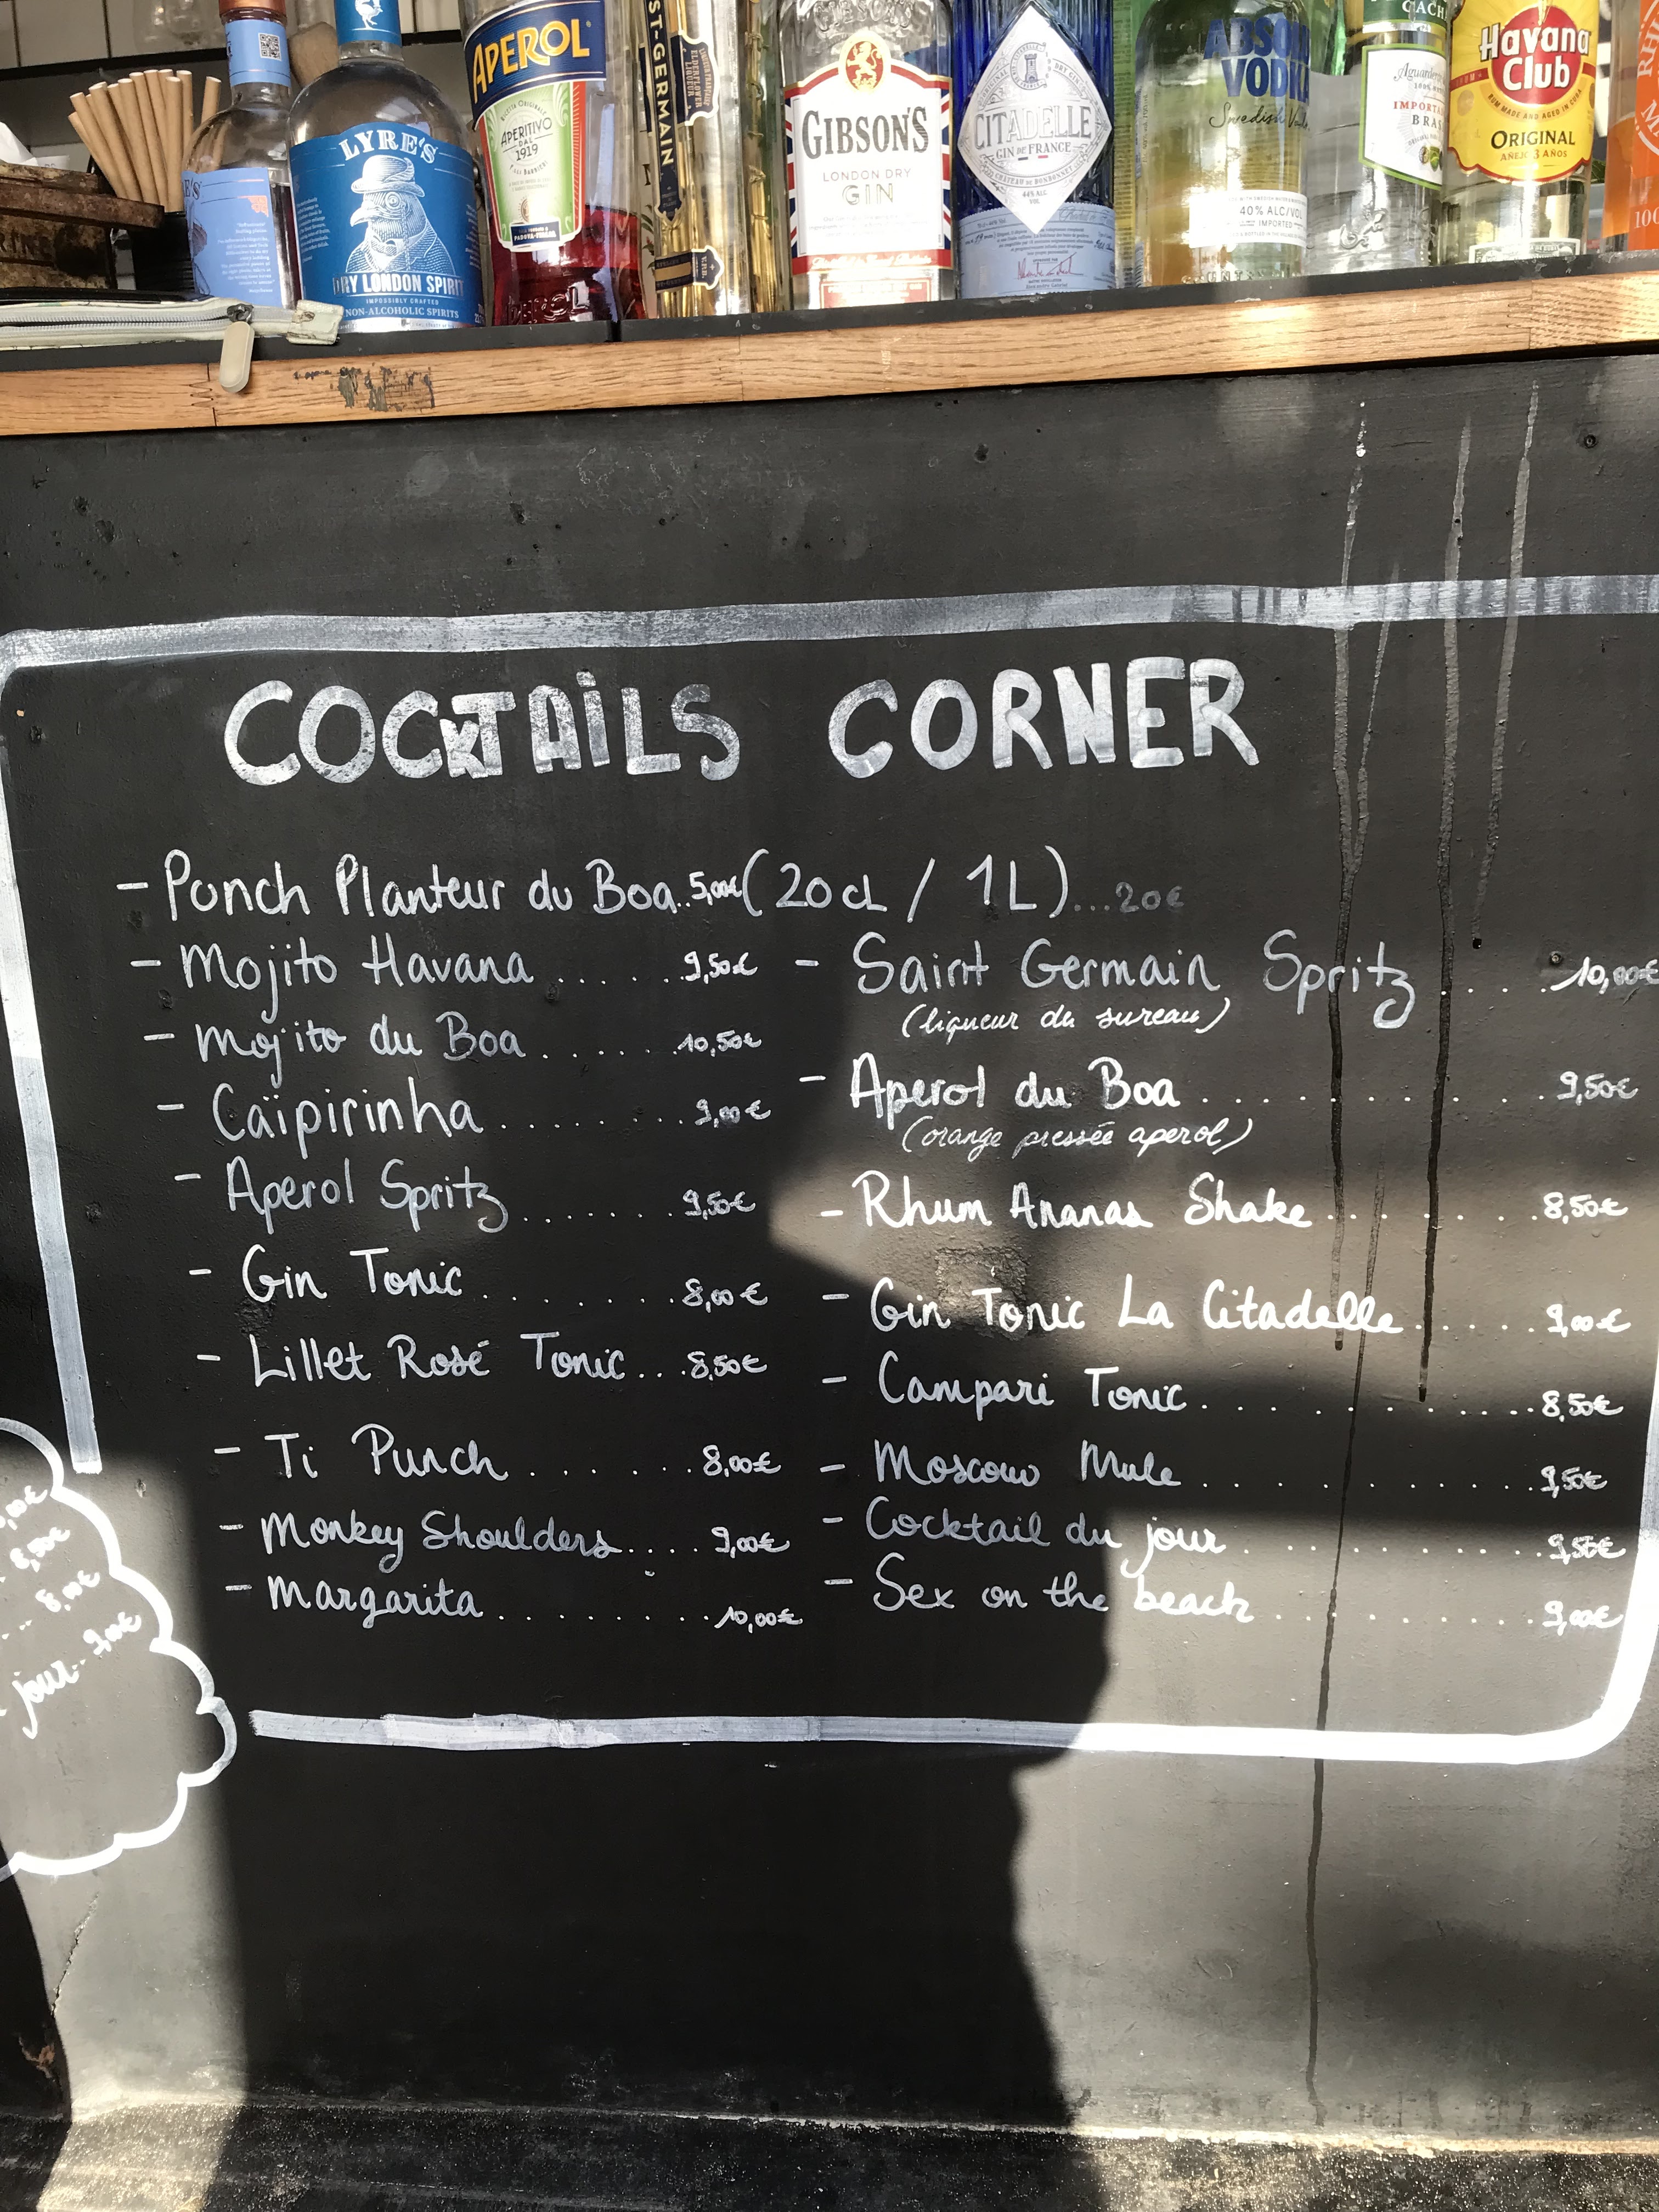 LYRE'S
DRY LONDON SPIRIT
IMPOSSIBLY CRAFTED
NON-ALCOHOLIC SPIRITS
APEROL
APERITIVO
DAL
1919
ST-GERMAIN
GIBSON'S
LONDON DRY
GIN
CITADELLE
GIN DE FRANCE
44% ALC
VOL
ABSOL
VODK
Swedish
40% ALC/VOL
IMPORTED
CACH
IMPORTA
BRAS
Havana
Club
RUM MADE AND AGED IN CUBA
ORIGINAL
AÑEJO 3 AÑOS
COCKTAILS CORNER
- Punch Planteur du Boa..5,00€ (20cl / 1L)...20€
- Mojito Havana ..... 9,50€
- Mojito du Boa ...... 10,50€
- Caïpirinha ....... 9,00€
- Aperol Spritz ....... 9,50€
- Gin Tonic ....... 8,00€
- Lillet Rosé Tonic ... 8,50€
- Ti Punch ...... 8,00€
- Monkey Shoulders .... 9,00€
- Margarita ........ 10,00€
- Saint Germain Spritz .... 10,00€
(liqueur de sureau)
- Aperol du Boa ........... 9,50€
(orange pressée aperol)
- Rhum Ananas Shake ....... 8,50€
- Gin Tonic La Citadelle ..... 9,00€
- Campari Tonic ............ 8,50€
- Moscow Mule ............ 9,50€
- Cocktail du jour ........... 9,50€
- Sex on the beach .......... 9,00€
8,50€
jour..